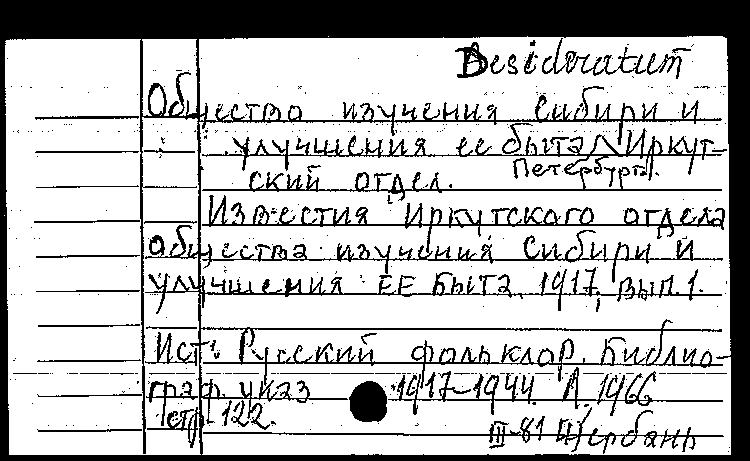 Desideratum
Общество изучения Сибири и
улучшения ее быта, Иркут-
Петербург.
ский отдел.
Известия Иркутского отдела
общества изучения Сибири и
улучшения ЕЕ БЫТА, 1917, вып. 1.
Ист: Русский фольклор. Библио-
граф. указ 1917-1944. Л, 1966
стр. 122.
III-81 Щербань